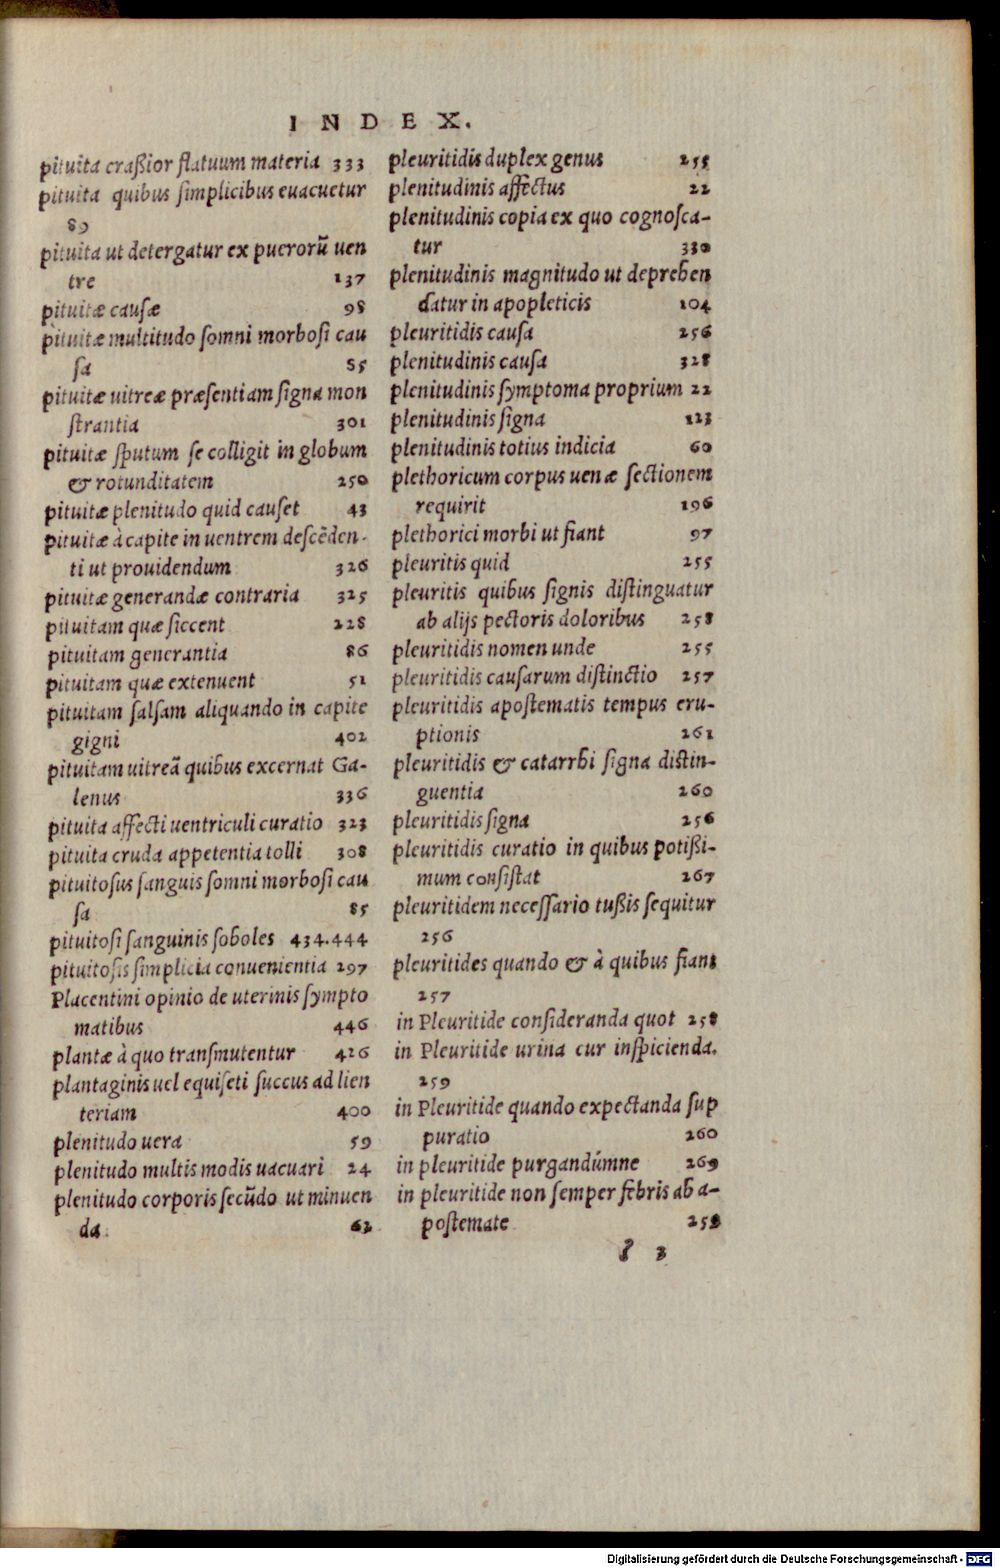 INDEX.
pituita craßior flatuum materia 333
pituita quibus ſimplicibus euacuetur
89
pituita ut detergatur ex puerorũ uen
tre 137
pituitæ cauſæ 98
pituitæ multitudo ſomni morboſi cau
ſa 85
pituitæ uitreæ præſentiam ſigna mon
ſtrantia 301
pituitæ ſputum ſe colligit in globum
& rotunditatem 250
pituitæ plenitudo quid cauſet 43
pituitæ à capite in uentrem deſcẽden-
ti ut prouidendum 326
pituitæ generandæ contraria 325
pituitam quæ ſiccent 228
pituitam generantia 86
pituitam quæ extenuent 51
pituitam ſalſam aliquando in capite
gigni 402
pituitam uitreã quibus excernat Ga-
lenus 336
pituita affecti uentriculi curatio 323
pituita cruda appetentia tolli 308
pituitoſus ſanguis ſomni morboſi cau
ſa 85
pituitoſi ſanguinis ſoboles 434.444
pituitoſis ſimplicia conuenientia 297
Placentini opinio de uterinis ſympto
matibus 446
plantæ à quo tranſmutentur 426
plantaginis uel equiſeti ſuccus ad lien
teriam 400
plenitudo uera 59
plenitudo multis modis uacuari 24
plenitudo corporis ſecũdo ut minuen
da 62
pleuritidis duplex genus 255
plenitudinis affectus 22
plenitudinis copia ex quo cognoſca-
tur 330
plenitudinis magnitudo ut deprehen
datur in apopleticis 104
pleuritidis cauſa 256
plenitudinis cauſa 328
plenitudinis ſymptoma proprium 22
plenitudinis ſigna 123
plenitudinis totius indicia 60
plethoricum corpus uenæ ſectionem
requirit 196
plethorici morbi ut fiant 97
pleuritis quid 255
pleuritis quibus ſignis diſtinguatur
ab alijs pectoris doloribus 258
pleuritidis nomen unde 255
pleuritidis cauſarum diſtinctio 257
pleuritidis apoſtematis tempus eru-
ptionis 261
pleuritidis & catarrhi ſigna diſtin-
guentia 260
pleuritidis ſigna 256
pleuritidis curatio in quibus potißi-
mum conſiſtat 267
pleuritidem neceſſario tußis ſequitur
256
pleuritides quando & à quibus fiant
257
in Pleuritide conſideranda quot 258
in Pleuritide urina cur inſpicienda.
259
in Pleuritide quando expectanda ſup
puratio 260
in pleuritide purgandúmne 269
in pleuritide non ſemper febris ab a-
poſtemate 258
3
Digitalisierung gefördert durch die Deutsche Forschungsgemeinschaft - DFG